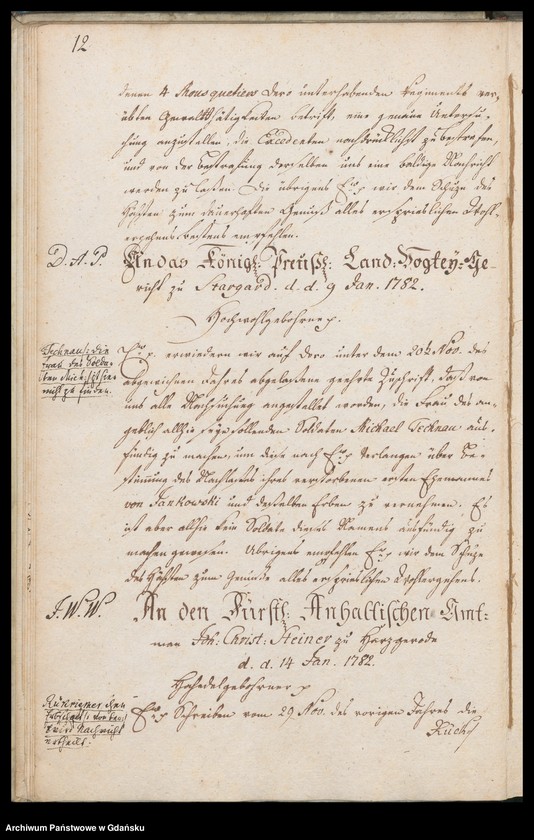 12
denen 4 Mousquetiers dero unterhabenden Regiments ver-
übten Gewaltthätigkeiten betrift, eine genaue Untersu-
chung anzustellen, die Excedenten nachdrücklichst zu bestrafen,
und von der Bestrafung derselben uns eine baldige Nachricht
werden zu lassen. Die übrigens Ew. p wir dem Schutze des
Höchsten zum dauerhaften Genuß alles ersprieslichen Wohl-
ergehens bestens empfehlen.
D. A. P.
An das Königl: Preußl: Land-Vogtey-Ge-
richt zu Stargard. d. d. 9 Jan. 1782.
Hochwohlgebohrne p.
Technau: die
Frau des Solda-
ten Mich: ist hier
nicht zu finden.
Ew. p. erwiedern wir auf Dero unter dem 20ten Nov. des
abgewichnen Jahres abgelaßene geehrte Zuschrift, daß von
uns alle Nachsuchung angestellet worden, die Frau des an-
geblich allhie seyn sollenden Soldaten Michael Technau aus-
fündig zu machen, um diese nach Ew. p Verlangen über Be-
stimmung des Nachlaßes ihres verstorbenen ersten Ehemannes
von Jankowski und deßelben Erben zu vernehmen. Es
ist aber allhie kein Soldat dieses Namens ausfündig zu
machen gewesen. Übrigens empfehlen Ew. p wir dem Schutze
des Höchsten zum Genuße alles ersprieslichen Wohlergehens.
J. W. W.
An den Fürstl: Anhaltischen Amt-
man Joh. Christ: Steiner zu Harzgerode
d. d. 14 Jan. 1782.
Hochedelgebohrner p
wird Nachricht
ertheilt.
Ew. p Schreiben vom 29 Nov. des vorigen Jahres die
Rück-
Archiwum Państwowe w Gdańsku